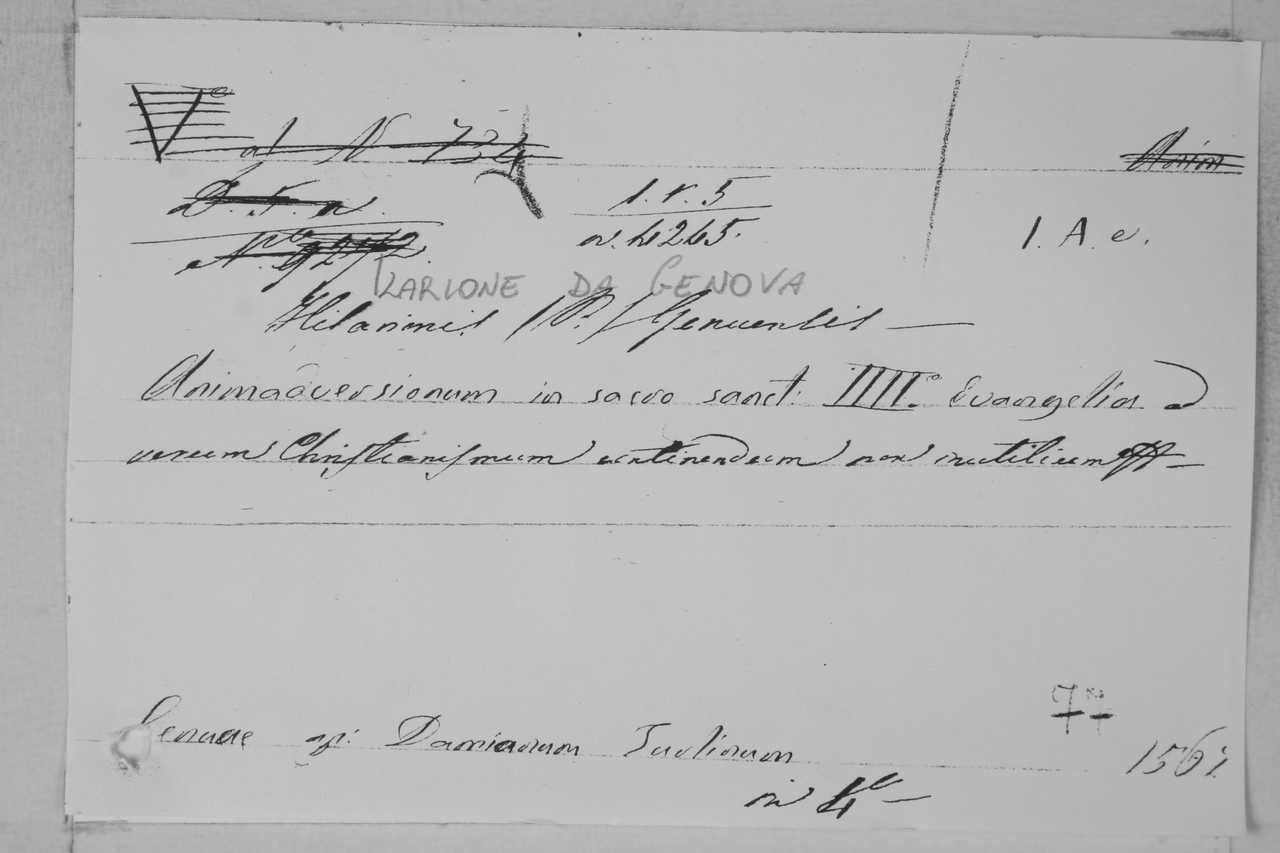 V.e al N 724
Anim
D. F. a.
1. r. 5
N. 9272
n. 4245.
1. A. e.
ILARIONE DA GENOVA
Hilarionis (P.) Genuensis —
Animadversionum in sacro sanct: IIII.o Evangelia ad
verum Christianismum continendum non inutilium —
77
Genuae ap: Damianum Turlinum 1567
in 4o —